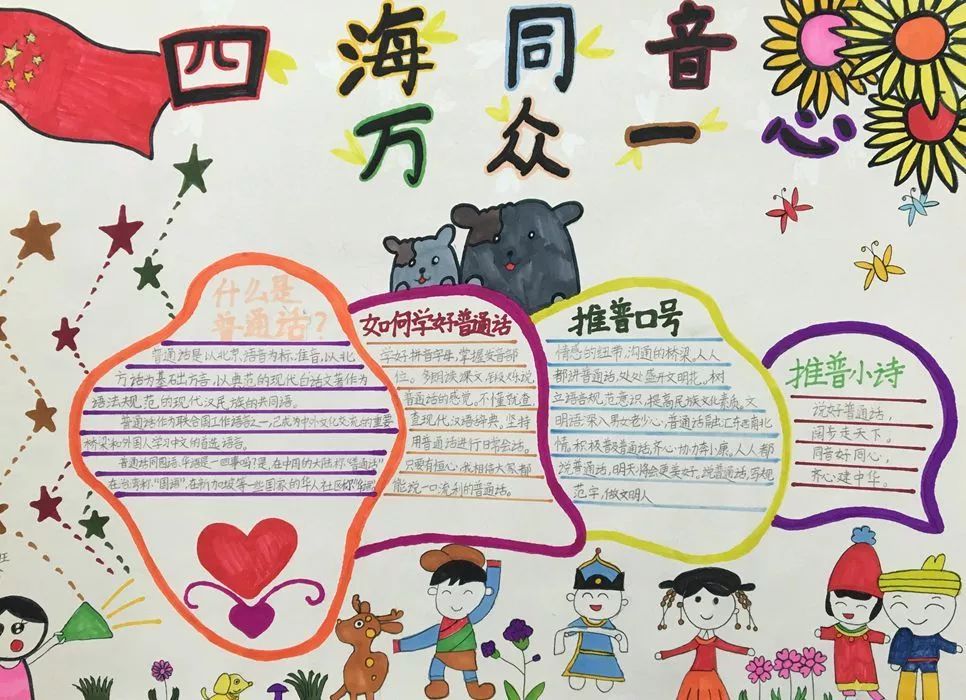 四海同音
万众一心
什么是
普通话?
普通话是以北京语音为标准音,以北
方话为基础方言,以典范的现代白话文著作为
语法规范的现代汉民族的共同语。
普通话作为联合国工作语言之一,已成为中外文化交流的重要
桥梁和外国人学习中文的首选语言。
普通话同国语、华语是一些事吗?是,在中国的大陆称“普通话”
在台湾称“国语”,在新加坡等一些国家的华人社区称“华语”
如何学好普通话
学好拼音字母,掌握发音部
位。多朗读课文,锻炼说
普通话的感觉,不懂就查
查现代汉语辞典。坚持
用普通话进行日常会话。
只要有恒心,我相信大家都
能说一口流利的普通话。
推普口号
情感的纽带,沟通的桥梁。人人
都讲普通话,处处盛开文明花。树
立语言规范意识,提高民族文化素质。文
明语深入男女老少心,普通话融出东西南北
情。积极普及普通话,齐心协力奔小康。人人都
说普通话,明天将会更美好。说普通话,写规
范字,做文明人
推普小诗
说好普通话,
阔步走天下。
同音好同心,
齐心建中华。